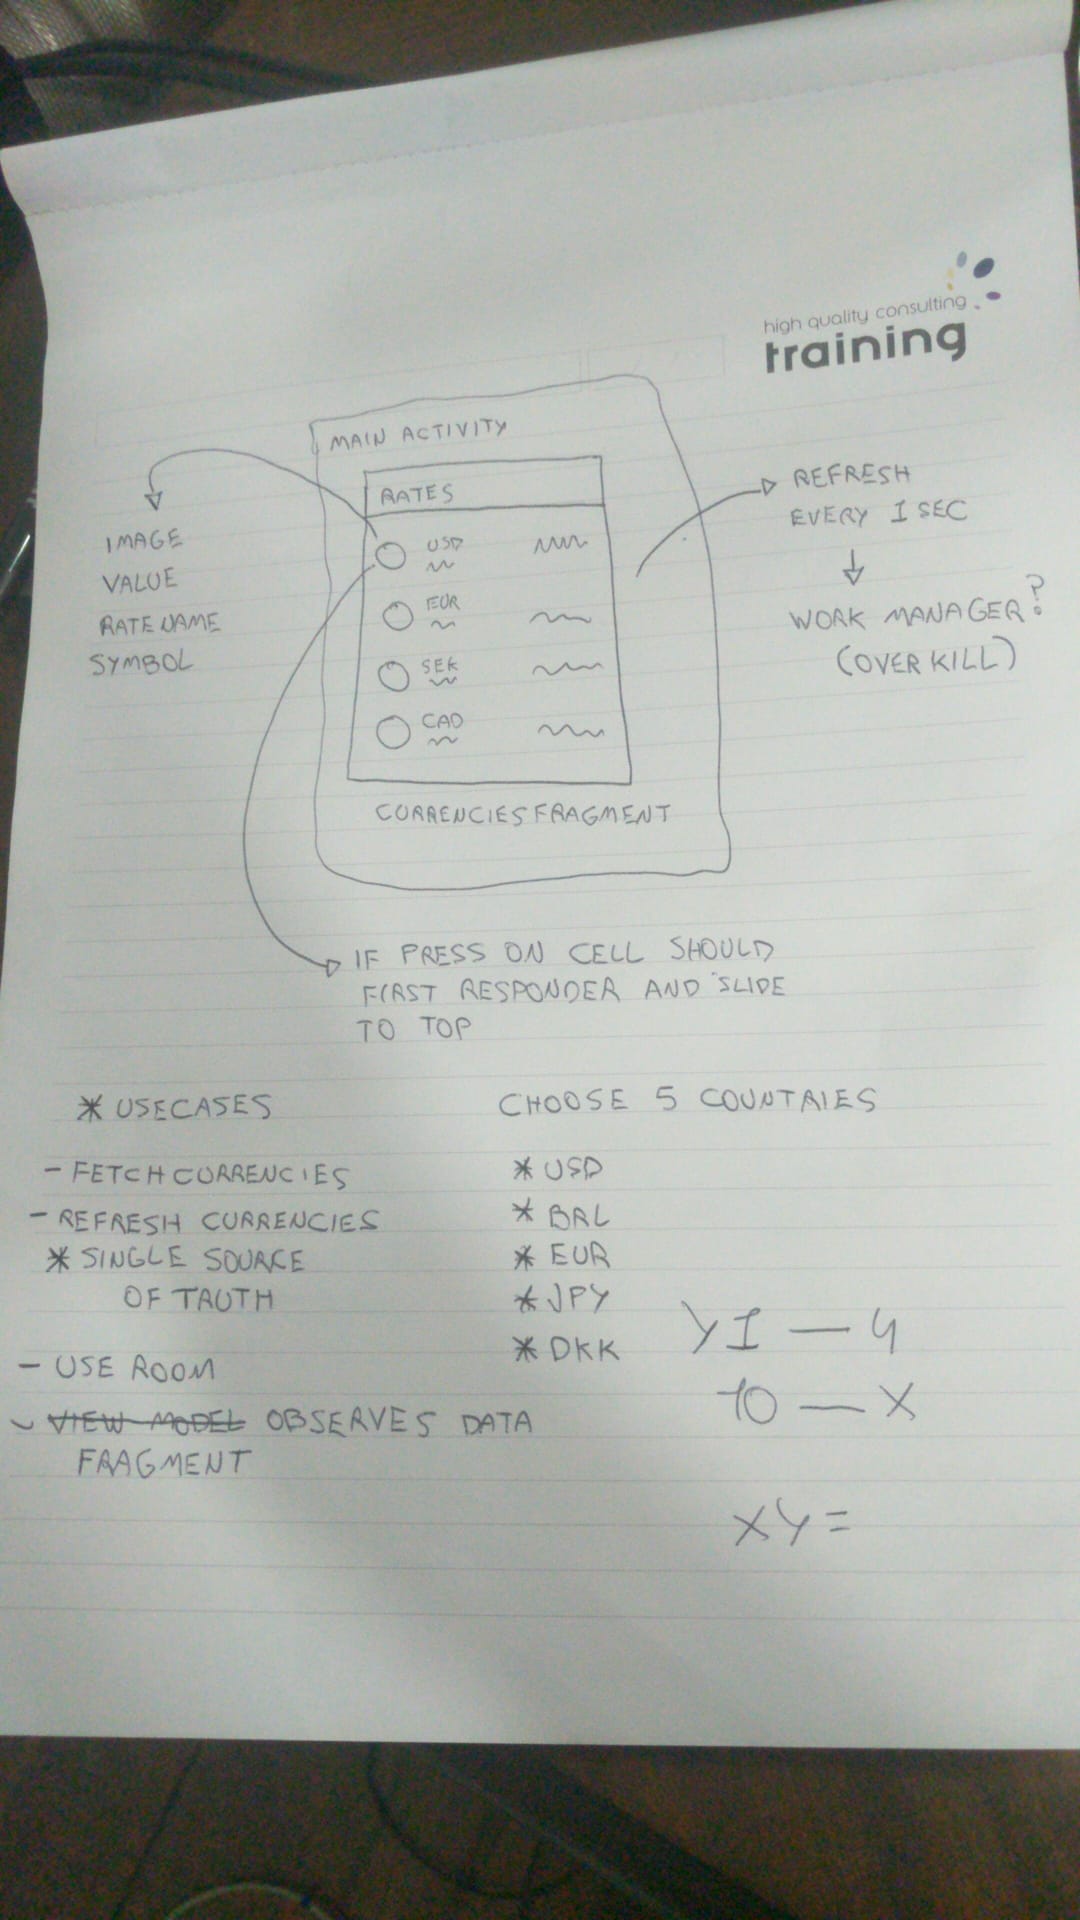 high quality consulting
training
MAIN ACTIVITY
RATES
USD
EUR
SEK
CAD
CURRENCIESFRAGMENT
IMAGE
VALUE
RATENAME
SYMBOL
REFRESH
EVERY 1 SEC
WORK MANAGER?
(OVERKILL)
IF PRESS ON CELL SHOULD
FIRST RESPONDER AND SLIDE
TO TOP
* USECASES
- FETCH CURRENCIES
- REFRESH CURRENCIES
* SINGLE SOURCE
OF TRUTH
- USE ROOM
- VIEW MODEL OBSERVES DATA
FRAGMENT
CHOOSE 5 COUNTRIES
* USD
* BRL
* EUR
* JPY
* DKK
Y1 — 4
10 — X
XY =